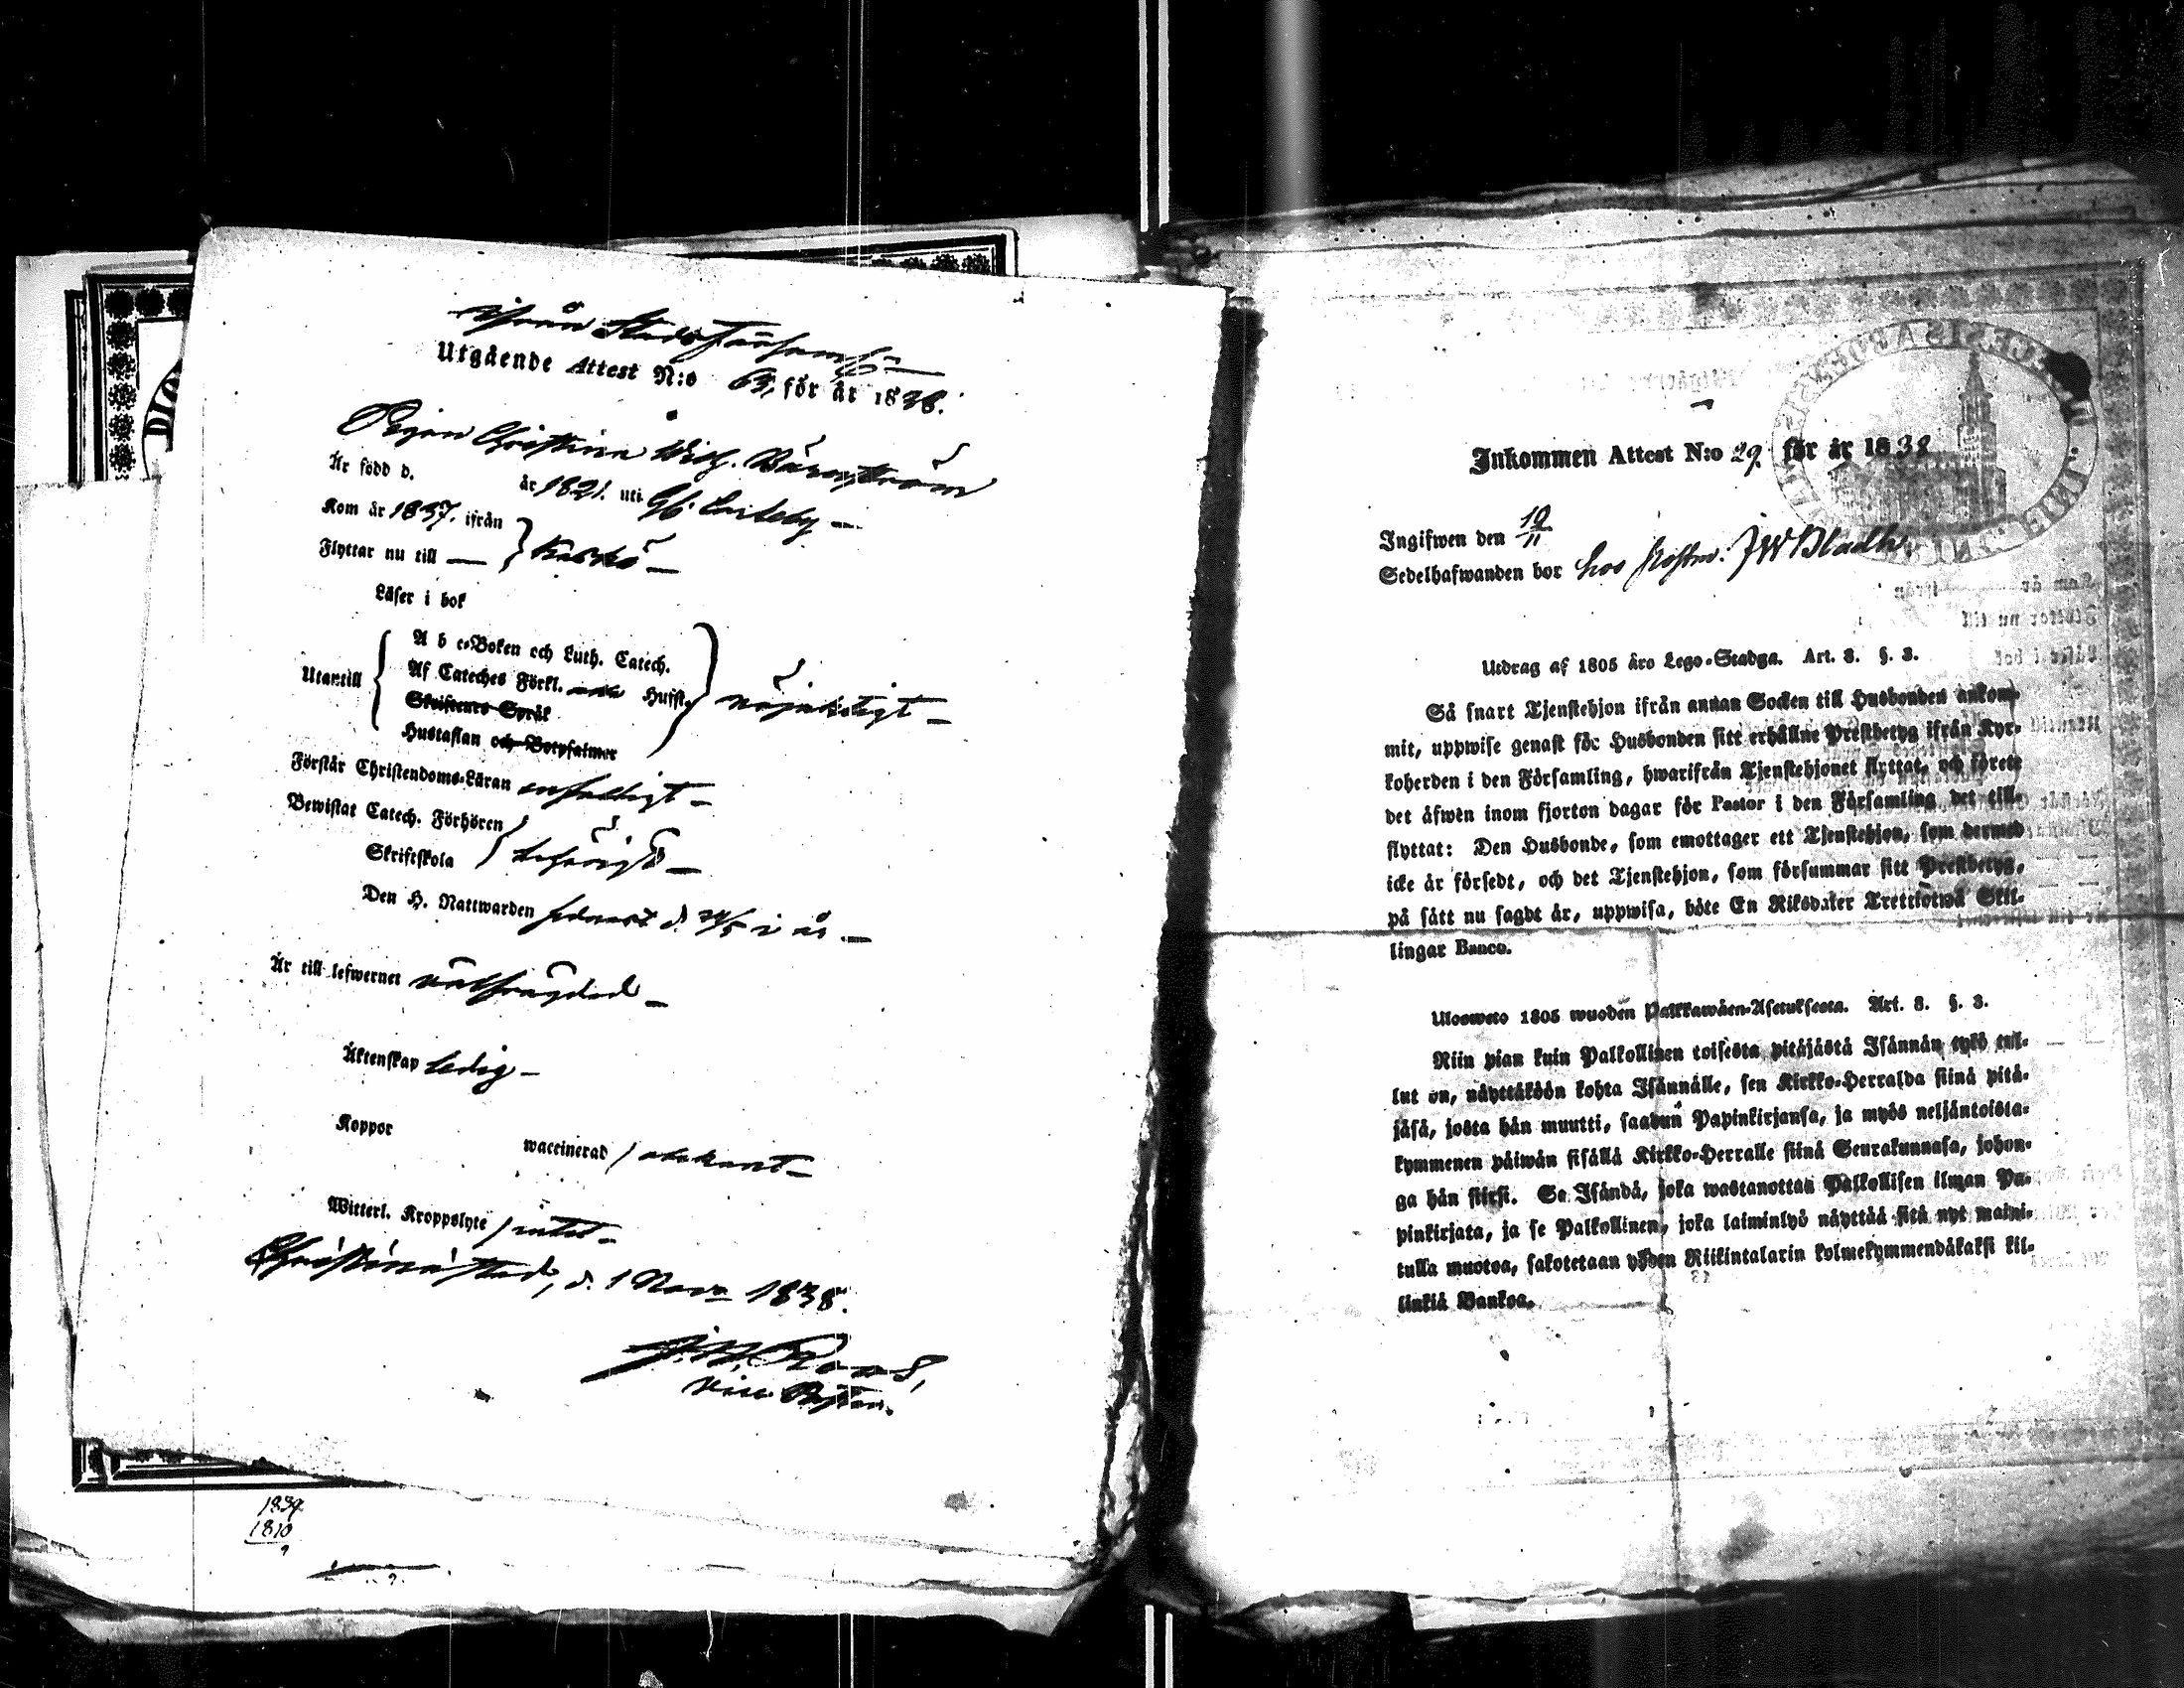 ifrån Stads församl:
Utgående Attest N:o 63, för år 1838.
Pigan Christina Wilh. Bäckström
Är född d. år 1821. uti
Kom år 1837. ifrån
Flyttar nu till — } Kaskö —
Läser i bok
Utantill
A b c-Boken och Luth. Catech.
Af Cateches Förkl. Hufst.
Skriftens Språk
Hustaflan och Botpsalmer
nöjaktigt —
Förstår Christendoms-Läran enfaldigt —
Bewistat Catech. Förhören
Skriftskola
behörigt —
Den H. Nattwarden sednast d. i år. —
Är till lefwernet wälfrägdad —
Äktenskap ledig —
Koppor waccinerad / obekant —
Witterl. Kroppslyte / intet —
Christinæstad, d. 1 Nov. 1838.
vice Pastor.
1839
1810
9
DIO
Inkommen Attest N:o 29. för år 1838
Ingifwen den 10/11
Sedelhafwanden bor hos JW Bladh.
Utdrag af 1805 års Lego-Stadga. Art. 8. §. 3.
Så snart Tjenstehjon ifrån annan Socken till Husbonden ankom-
mit, uppwise genast för Husbonden sitt erhållne Prestbetyg ifrån Kyr-
koherden i den Församling, hwarifrån Tjenstehjonet flyttat, och förete
det äfwen inom fjorton dagar för Pastor i den Församling det till-
flyttat: Den Husbonde, som emottager ett Tjenstehjon, som dermed
icke är försedt, och det Tjenstehjon, som försummar sitt Prestbetyg,
på sätt nu sagdt är, uppwisa, böte En Riksdaler Trettiotwå Skil-
lingar Banco.
Ulosweto 1805 wuoden Palkkawäen-Asetuksesta. Art. 8. §. 3.
Niin pian kuin Palkollinen toisesta pitäjästä Isännän tykö tul-
lut on, näyttäköön kohta Isännälle, sen Kirkko-Herralda siinä pitä-
jäsä, josta hän muutti, saadun Papinkirjansa, ja myös neljäntoista-
kymmenen päiwän sisällä Kirkko-Herralle siinä Seurakunnasa, johon-
ga hän siirsi. Se Isändä, joka wastanottaa Palkollisen ilman Pa-
pinkirjata, ja se Palkollinen, joka laiminlyö näyttää sitä nyt maini-
tulla muotoa, sakotetaan yhden Riikintalarin kolmekymmendäkaksi kil-
linkiä Bankoa.